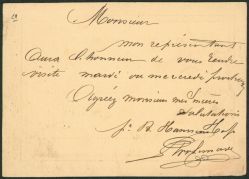 Monsieur
mon représentant
Aura l'honneur de vous rendre
visite mardi ou mercredi prochain
Agréez monsieur mes sincères
salutations
pr B.